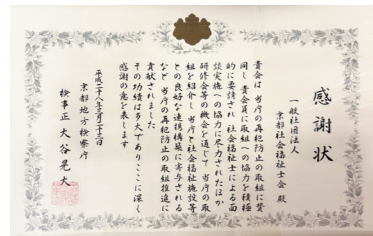 感謝状
一般社団法人
京都社会福祉士会 殿
貴会は 当庁の再犯防止の取組に賛
同し 貴会員に取組への協力を積極
的に要請され 社会福祉士による面
談実施への協力に尽力されたほか
研修会等の機会を通じて 当庁の取
組を紹介し 当庁と社会福祉施設等
との良好な連携構築に寄与される
など 当庁の再犯防止の取組推進に
貢献されました
その功績は多大でありここに深く
感謝の意を表します
平成二十八年三月二十二日
京都地方検察庁
検事正 大谷晃大